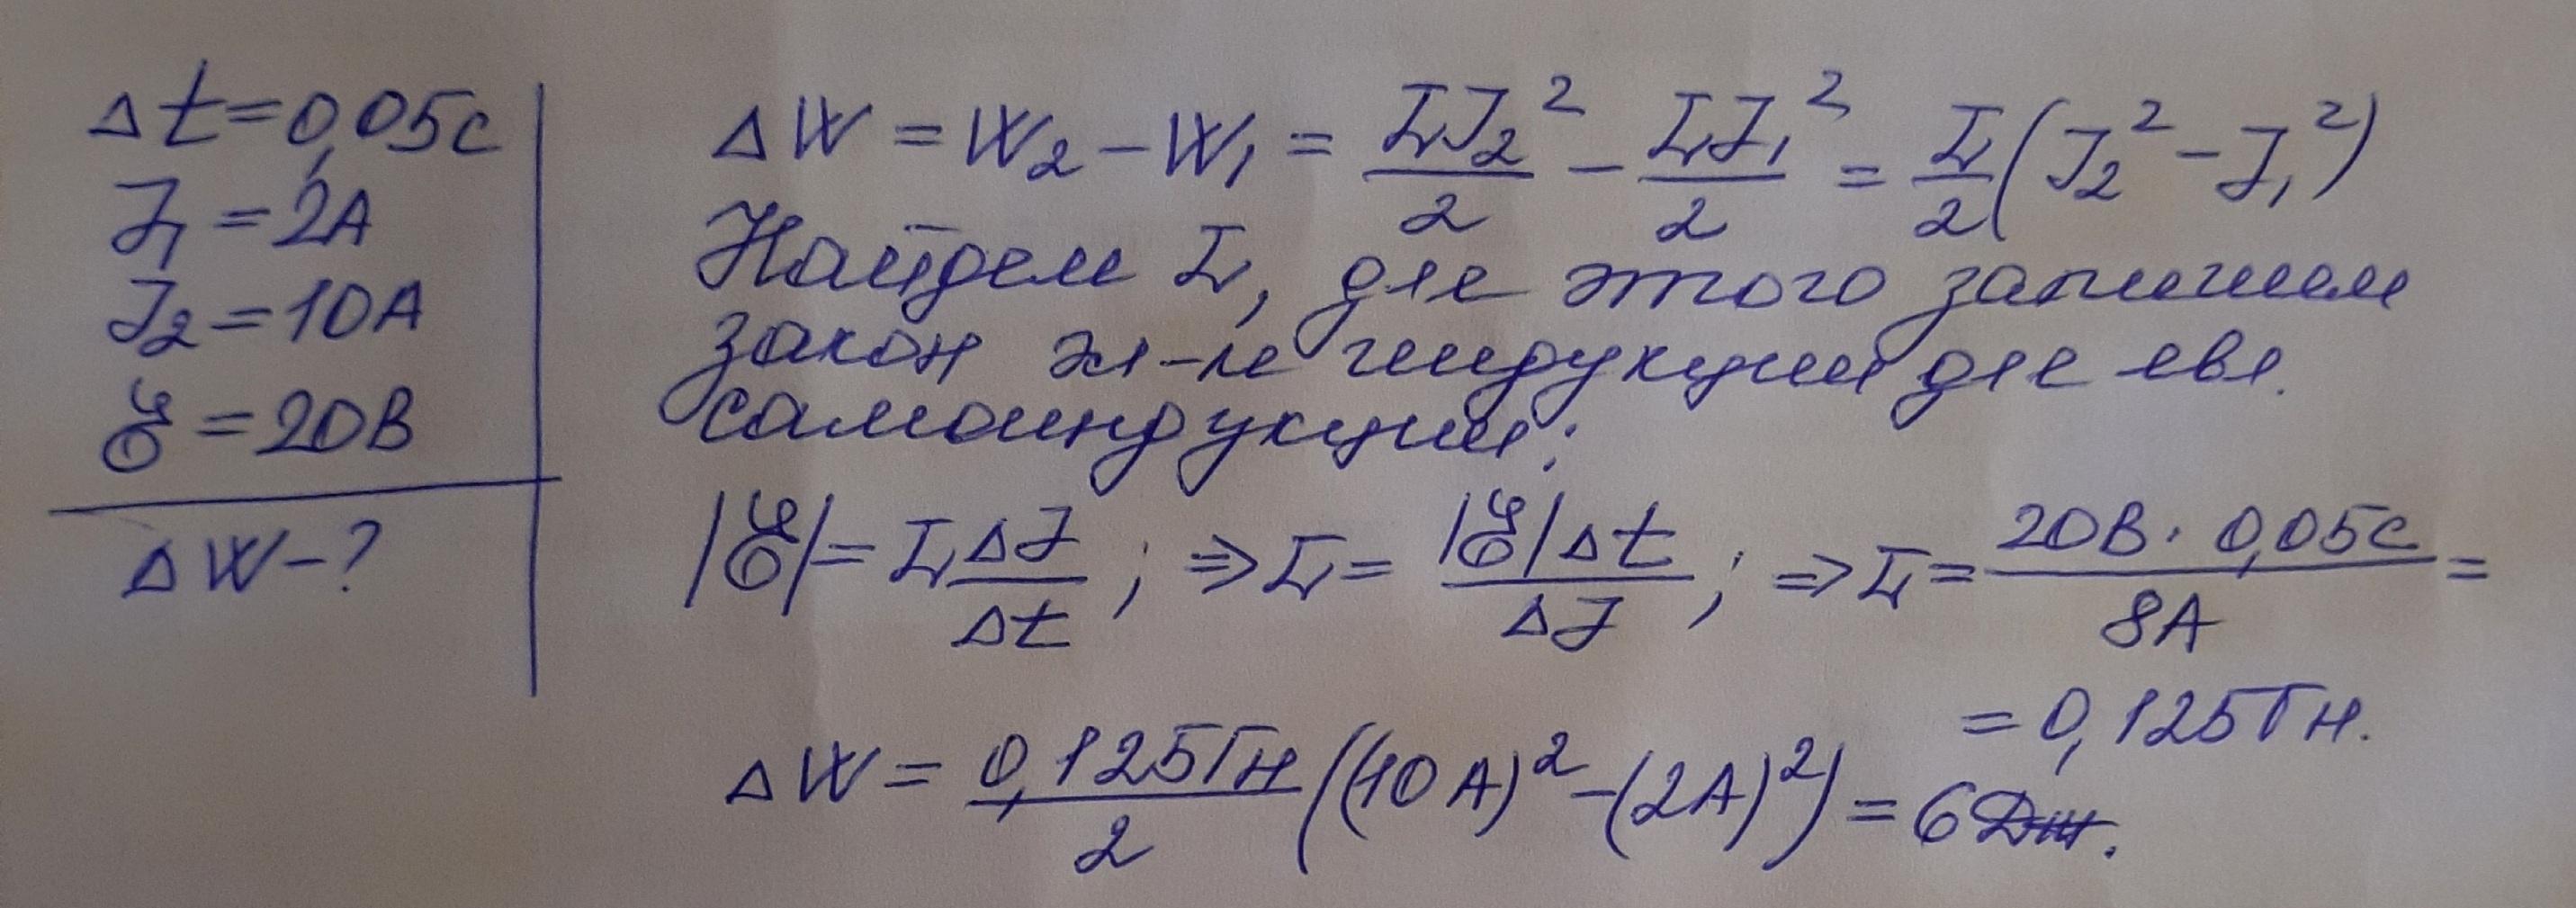 Δt=0,05с
J₁=2А
J₂=10А
ℰ=20В
ΔW-?
ΔW = W₂-W₁ = LJ₂²/2 - LJ₁²/2 = L/2(J₂²-J₁²)
Найдем L, для этого запишем
закон эл-м индукции для явл.
самоиндукции:
|ℰ|=LΔJ/Δt; ⇒L=|ℰ|Δt/ΔJ; ⇒L=20В·0,05с/8А=
=0,125Гн.
ΔW=0,125Гн/2((10А)²-(2А)²)=6Дж.